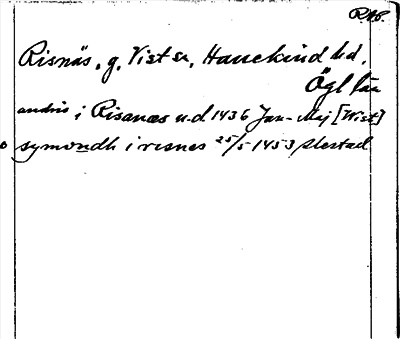 RAB.
Risnäs, g, Vist sn, Hanekind hd,
Ögl län
andris i Risanæs u.d 1436 Jan-Maj [Vist]
symondh i risnes 25/5 1453 Slestad